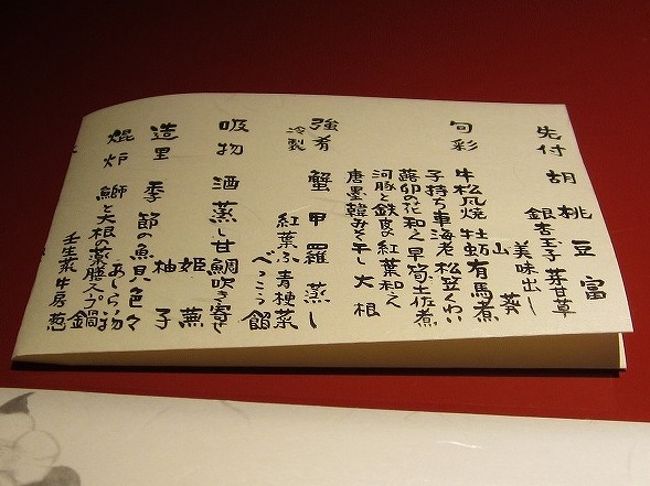 先付 胡桃豆富
銀杏玉子 芽甘草
美味出し
山葵
旬彩 牛松風焼 牡蛎有馬煮
子持ち車海老 松笠くわい
蕗卵の花和え 早筍土佐煮
河豚と鉄皮の紅葉和え
唐墨 大根
強肴 冷製 蟹甲羅蒸し
紅葉ふ 青梗菜
べっこう餡
吸物 酒蒸し甘鯛吹き寄せ
姫蕪
柚子
造里 季節の魚貝色々
あしらい物
焜炉 鰤と大根の薬膳スープ鍋
壬生菜 牛房 葱